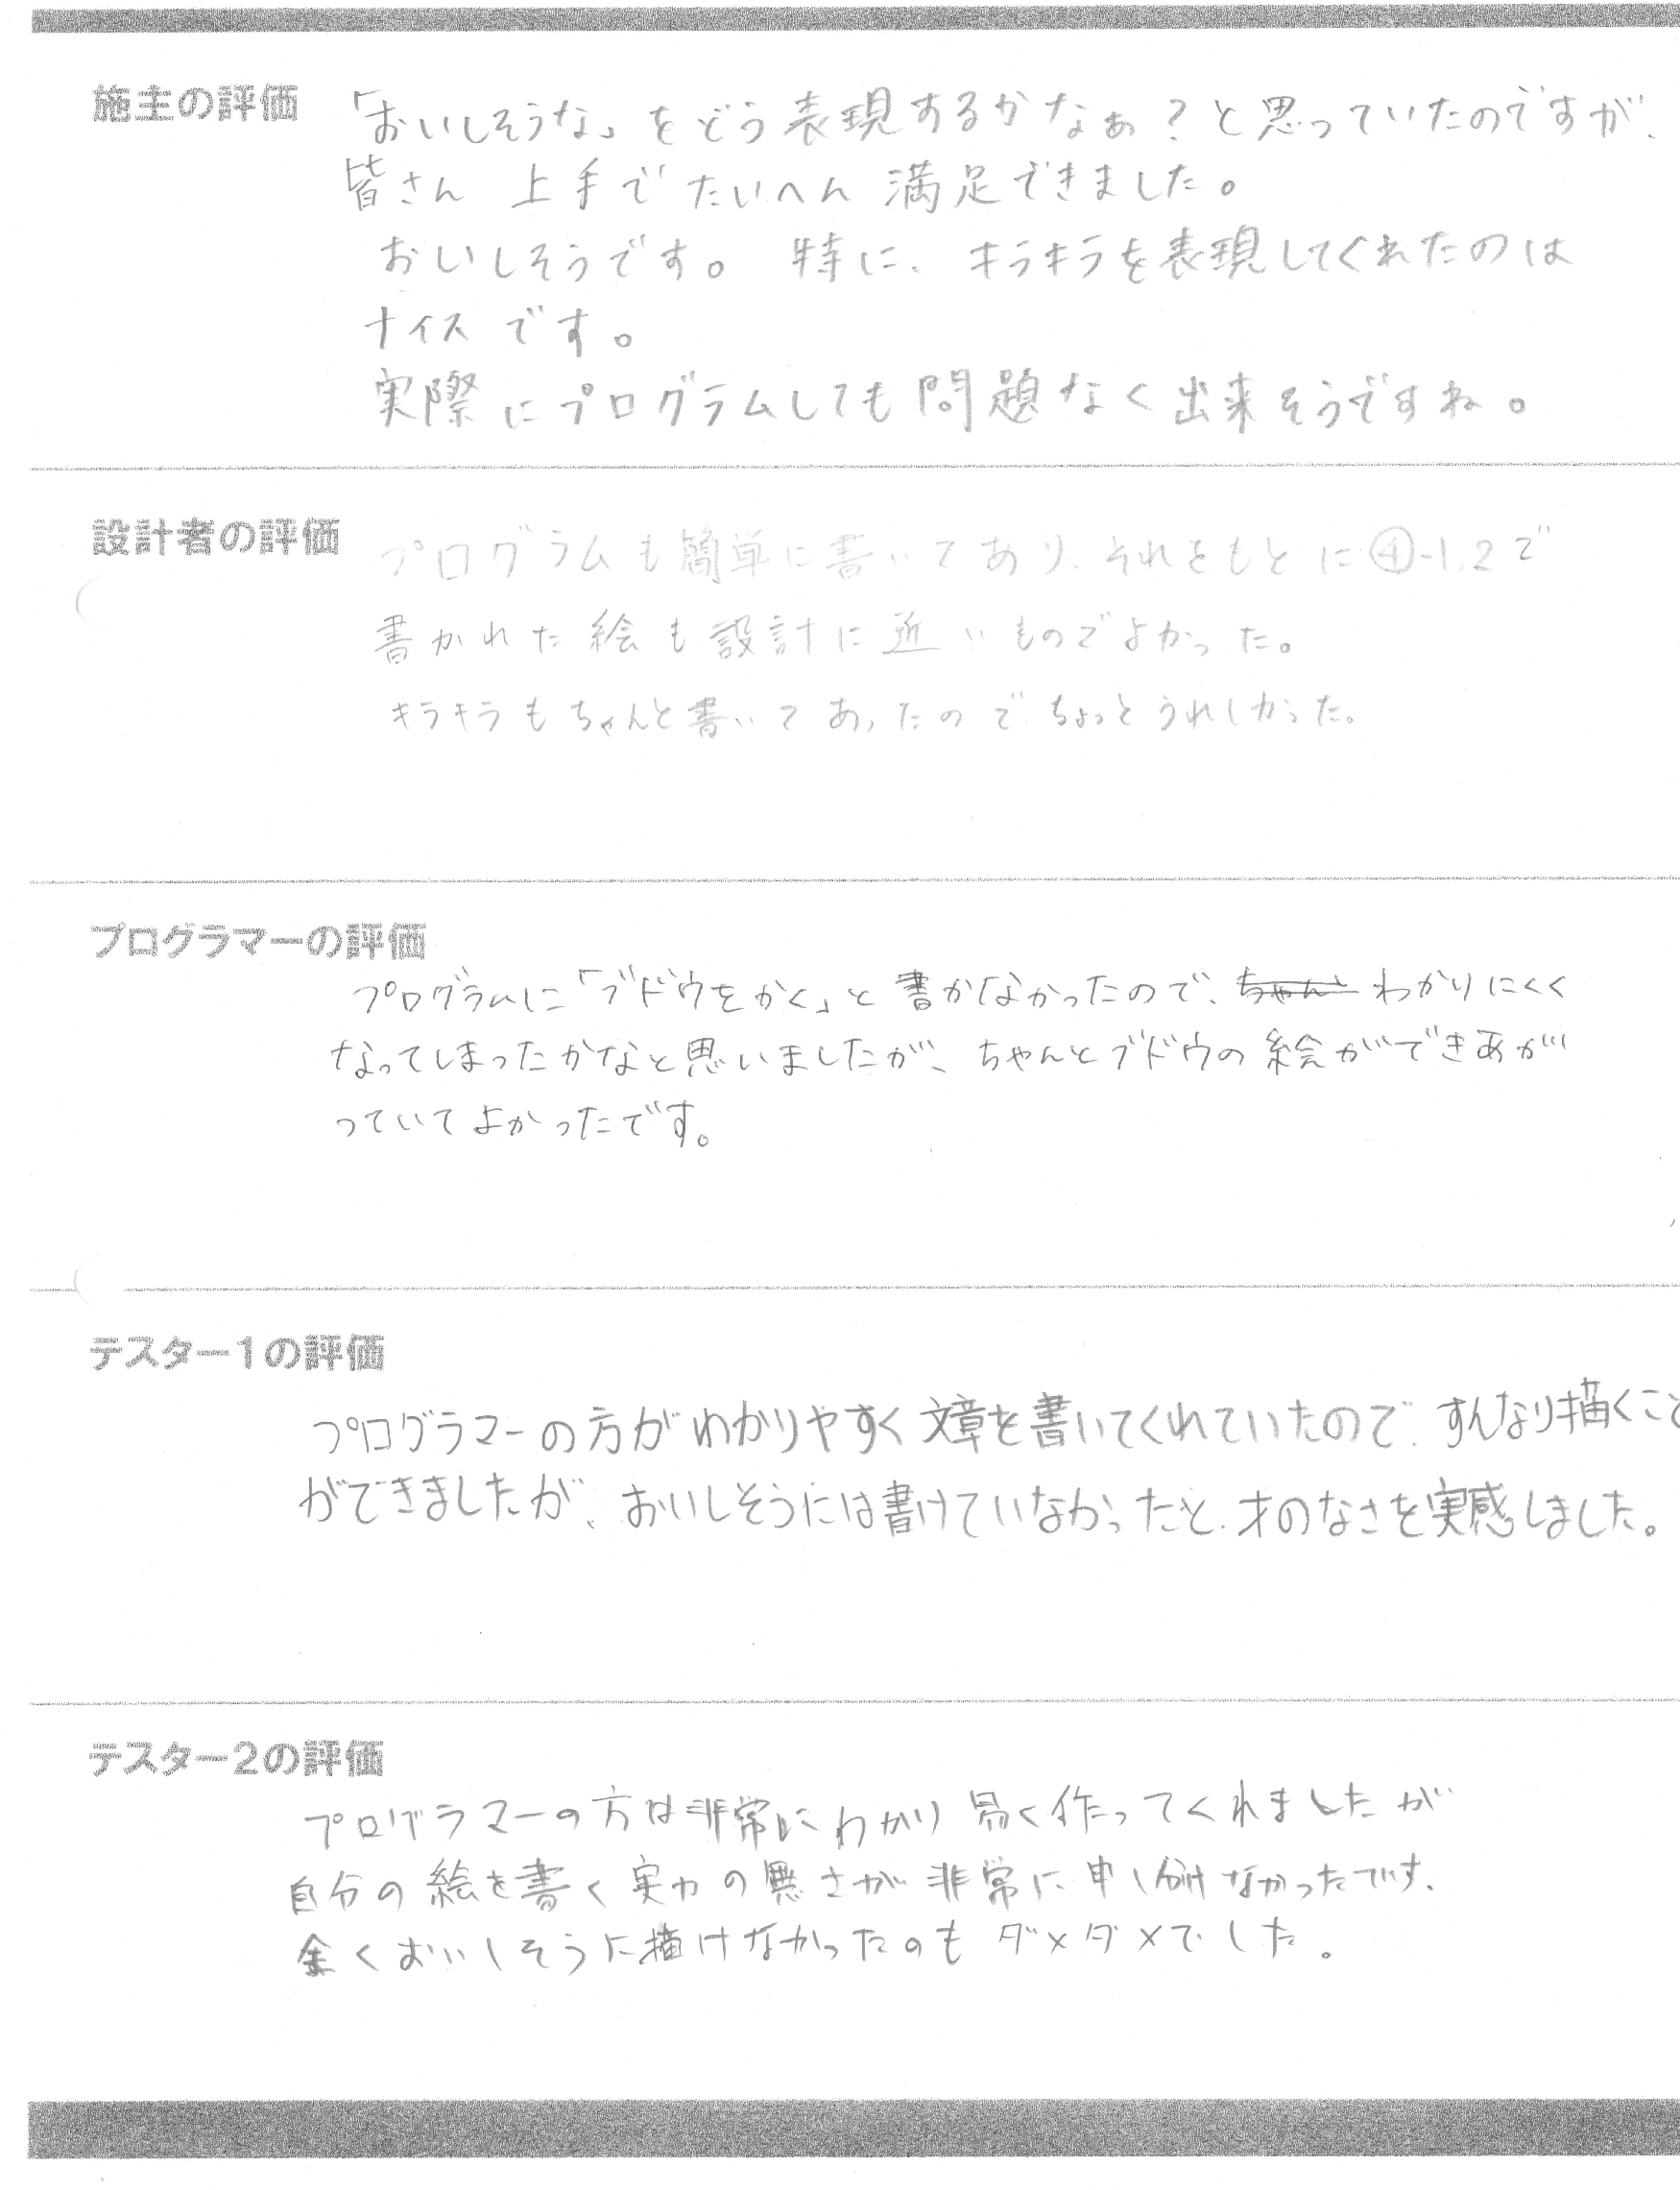 施主の評価
「おいしそうな」をどう表現するかなぁ？と思っていたのですが、
皆さん 上手で たいへん 満足できました。
おいしそうです。 特に、キラキラを表現してくれたのは
ナイスです。
実際にプログラムしても問題なく出来そうですね。
設計者の評価
プログラムも簡単に書いてあり、それをもとに④-1,2で
書かれた絵も設計に近いものでよかった。
キラキラもちゃんと書いてあったのでちょっとうれしかった。
プログラマーの評価
プログラムに「ブドウをかく」と書かなかったので、ちゃんと わかりにくく
なってしまったかなと思いましたが、ちゃんとブドウの絵ができあが
っていてよかったです。
テスター1の評価
プログラマーの方がわかりやすく文章を書いてくれていたので、すんなり描くこと
ができましたが、おいしそうには書けていなかったと、才のなさを実感しました。
テスター2の評価
プログラマーの方は非常にわかり易く作ってくれましたが
自分の絵を書く実力の無さが非常に申し訳なかったです。
全くおいしそうに描けなかったのもダメダメでした。